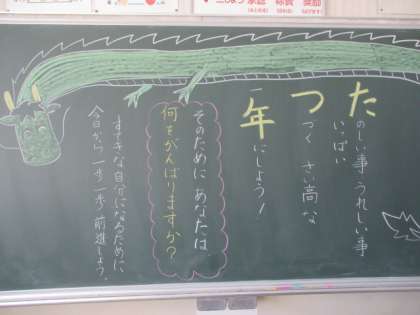 たのしい事・うれしい事
いっぱい
つづく さい高な
一年にしよう！
そのために あなたは
何をがんばりますか？
すてきな自分になるために
今日から 一歩一歩 前進しよう。